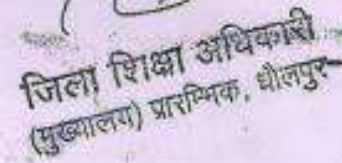 जिला शिक्षा अधिकारी
(मुख्यालय) प्रारम्भिक, धौलपुर